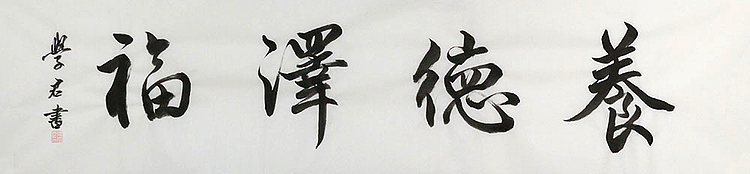 養德澤福
學君書